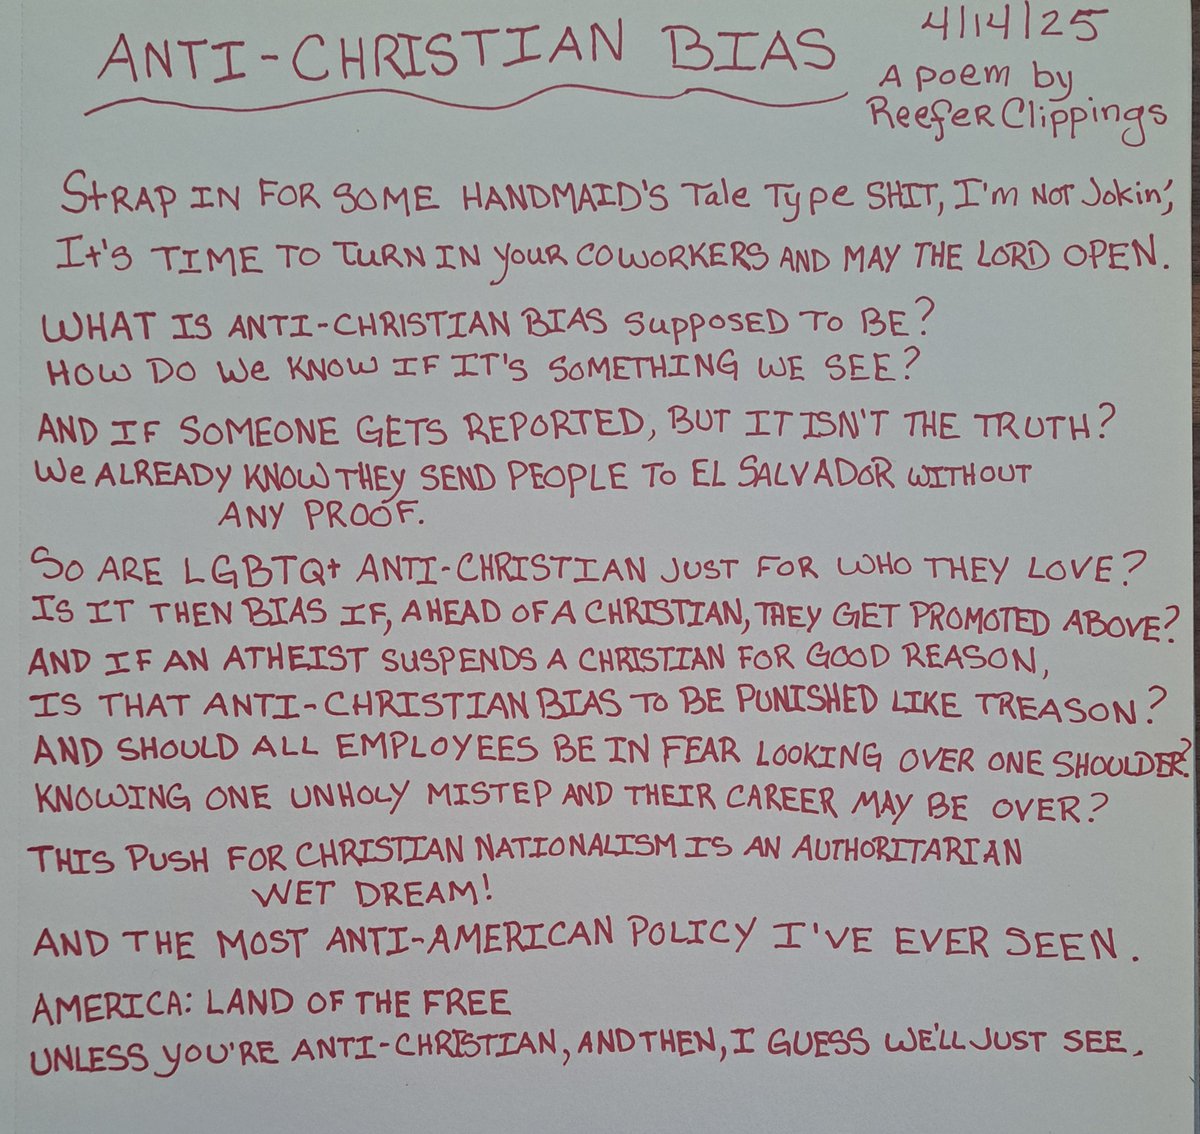 ANTI-CHRISTIAN BIAS
4/14/25
A poem by
Reefer Clippings
STRAP IN FOR SOME HANDMAID'S Tale Type SHIT, I'm NOT Jokin',
It's TIME TO TURN IN your COWORKERS AND MAY THE LORD OPEN.
WHAT IS ANTI-CHRISTIAN BIAS SuppOSED TO BE?
HOW DO We KNOW IF IT'S SOMETHING WE SEE?
AND IF SOMEONE GETS REPORTED, BUT IT ISN'T THE TRUTH?
We ALREADY KNOW THEY SEND PEOPLE TO EL SALVADOR WITHOUT
ANY PROOF.
SO ARE LGBTQ+ ANTI-CHRISTIAN JUST FOR WHO THEY LOVE?
IS IT THEN BIAS IF, AHEAD OF A CHRISTIAN, THEY GET PROMOTED ABOVE?
AND IF AN ATHEIST SUSPENDS A CHRISTIAN FOR GOOD REASON,
IS THAT ANTI-CHRISTIAN BIAS TO BE PUNISHED LIKE TREASON?
AND SHOULD ALL EMPLOYEES BE IN FEAR LOOKING OVER ONE SHOULDER?
KNOWING ONE UNHOLY MISTEP AND THEIR CAREER MAY BE OVER?
THIS PUSH FOR CHRISTIAN NATIONALISM IS AN AUTHORITARIAN
WET DREAM!
AND THE MOST ANTI-AMERICAN POLICY I'VE EVER SEEN.
AMERICA: LAND OF THE FREE
UNLESS YOU'RE ANTI-CHRISTIAN, AND THEN, I GUESS WE'LL JUST SEE.